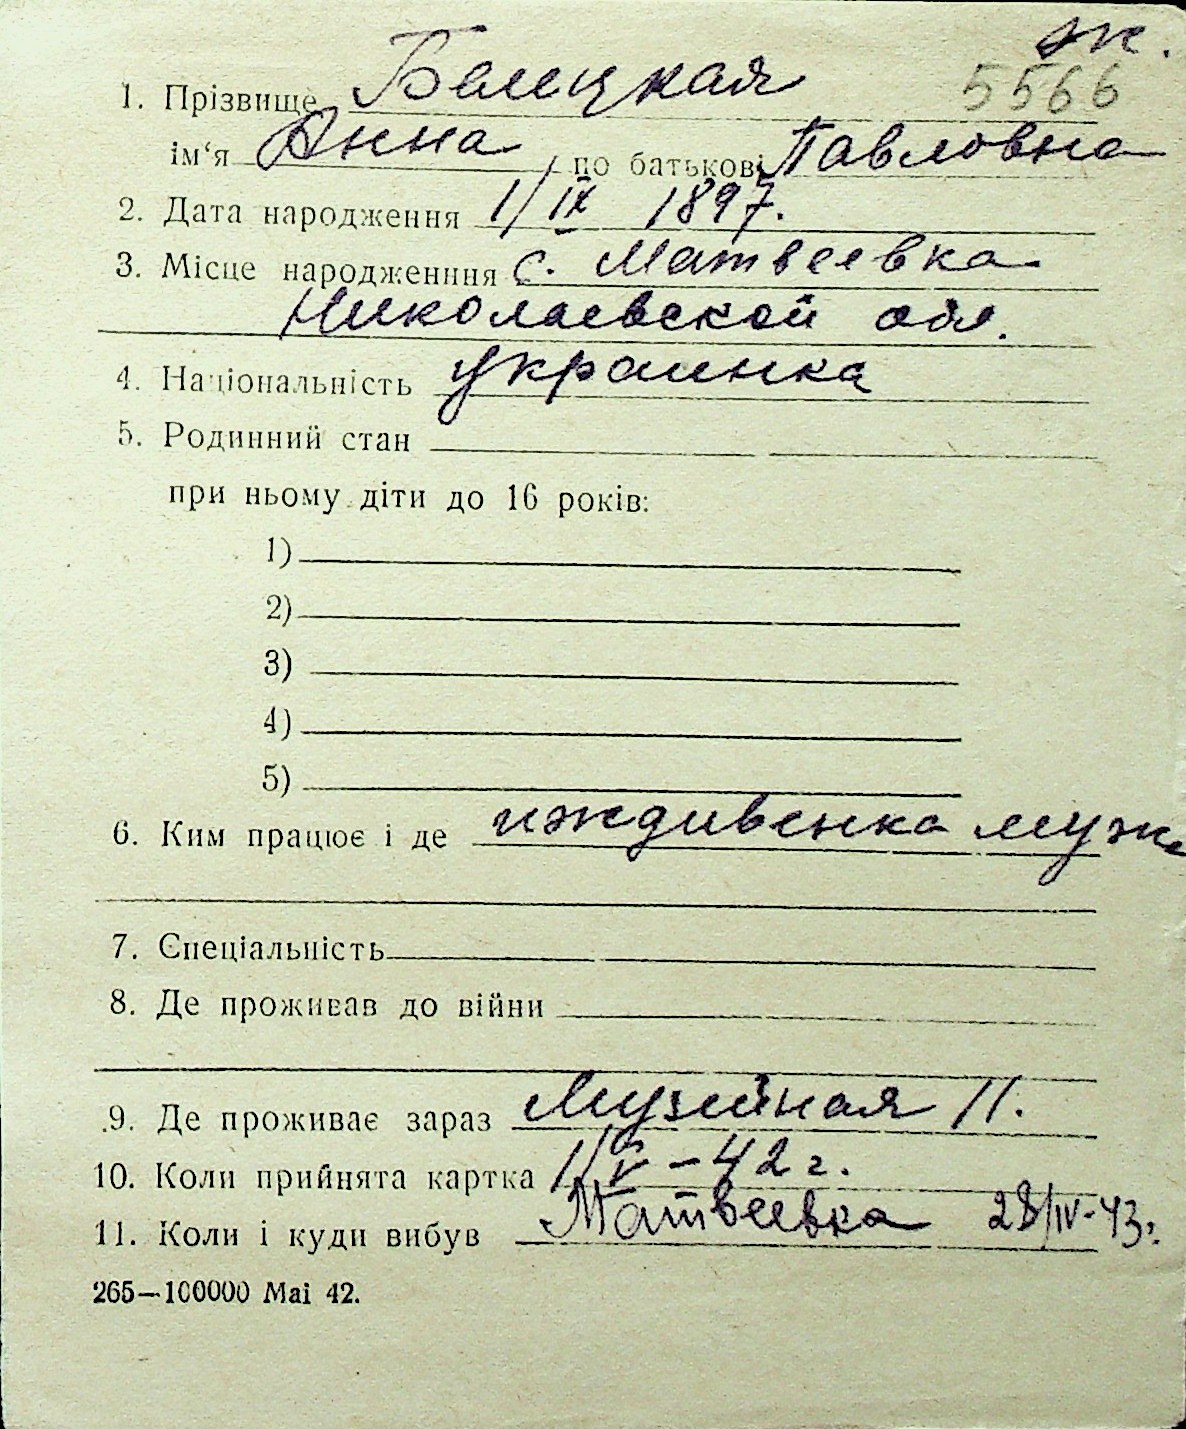 ж.
1. Прізвище Белецкая 5566
ім‘я Анна по батькові Павловна
2. Дата народження 1/IX 1897.
3. Місце народженння с. Матвеевка
Николаевской обл.
4. Національність украинка
5. Родинний стан
при ньому діти до 16 років:
1)
2)
3)
4)
5)
6. Ким працює і де иждивенка мужа
7. Спеціальність
8. Де проживав до війни
9. Де проживає зараз Музейная 11.
10. Коли прийнята картка 1/V – 42 г.
11. Коли і куди вибув Матвеевка 28/IV-43г.
265—100000 Mai 42.